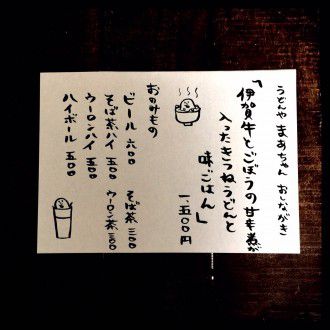 うどんや まあちゃん おしながき
「伊賀牛とごぼうの甘辛煮が
入ったきつねうどんと
味ごはん」
一、五〇〇円
おのみもの
ビール 六〇〇
そば茶ハイ 五〇〇
ウーロンハイ 五〇〇
ハイボール 五〇〇
そば茶 三〇〇
ウーロン茶 三〇〇